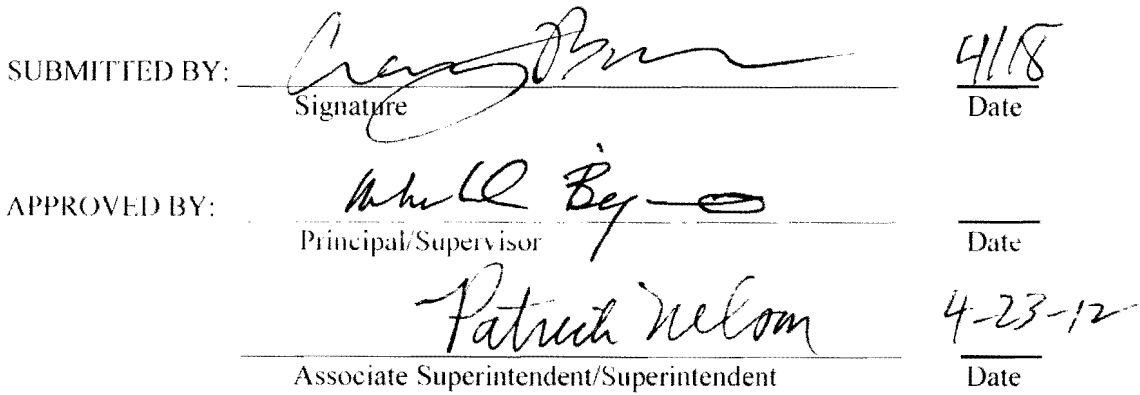 SUBMITTED BY: 4/18
Signature Date
APPROVED BY:
Principal/Supervisor Date
Patrick Nelson 4-23-12
Associate Superintendent/Superintendent Date